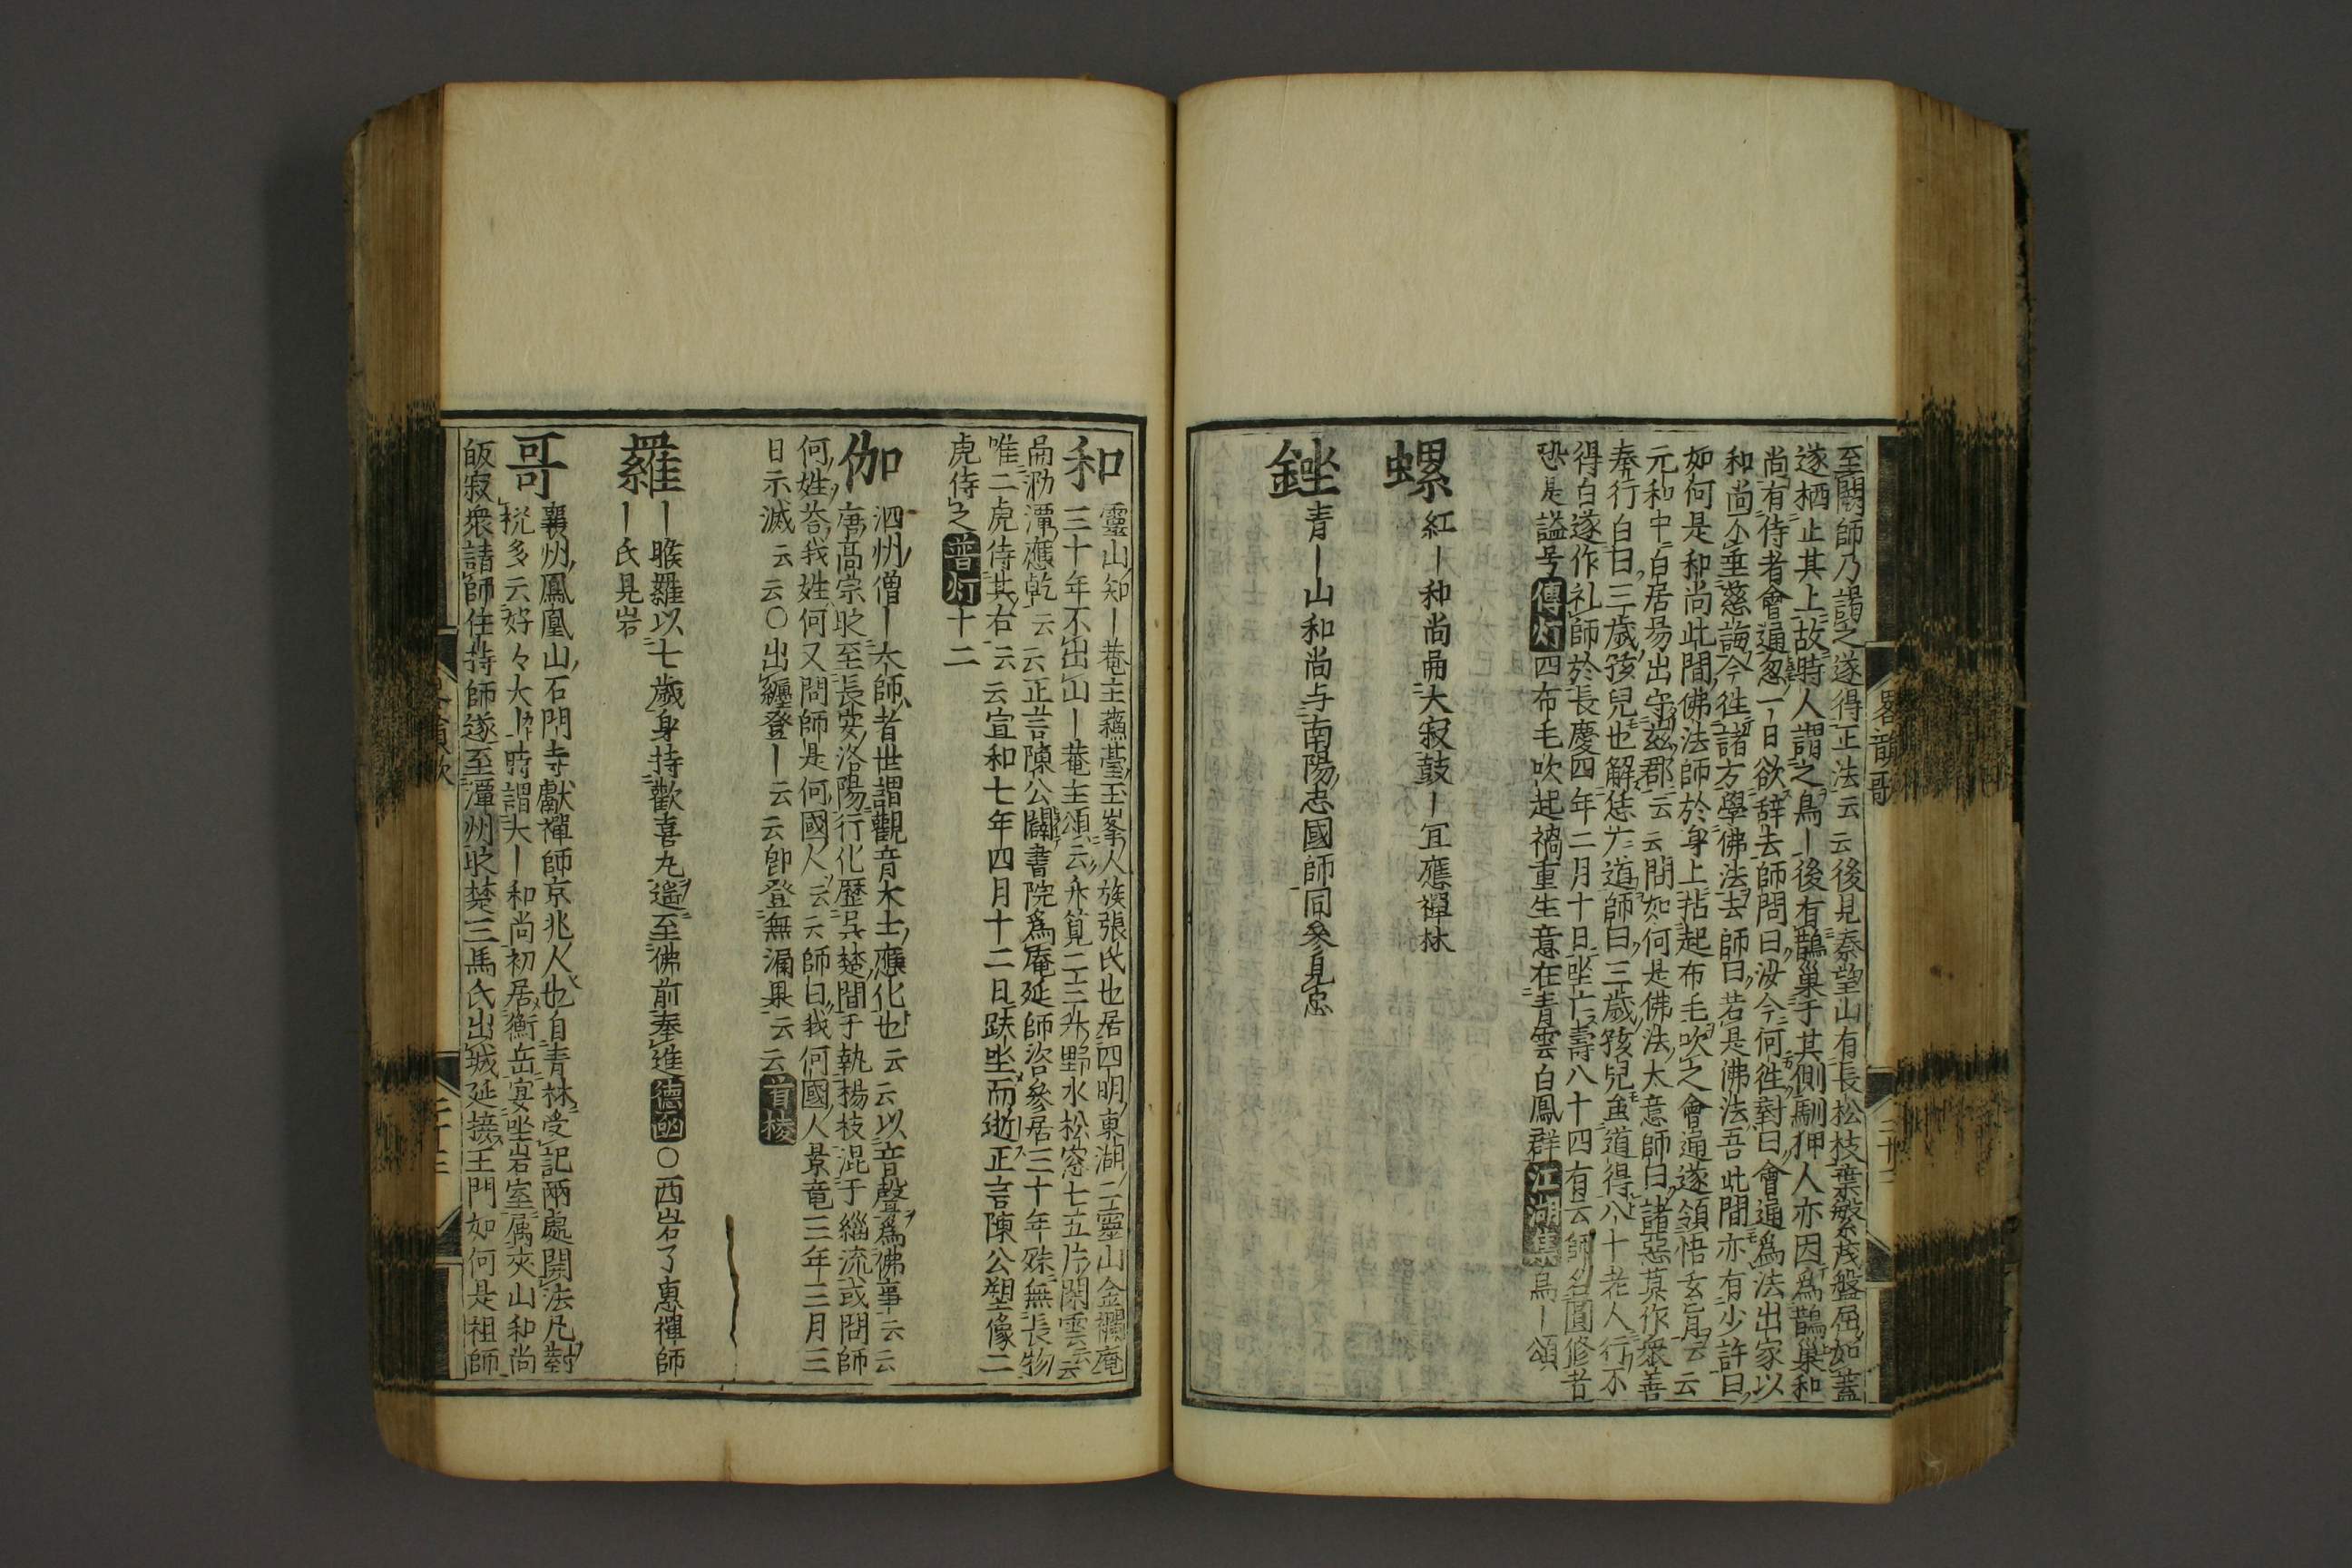 至闕師乃謁之遂得正法云云後見秦望山有長松枝葉繁茂盤屈如蓋
遂栖止其上故時人謂之鳥ー後有鵲巢于其側馴狎人亦因爲鵲巢和
尚有侍者會通忽一日欲辞去師問曰汝今何徃對曰會通爲法出家以
和尚不垂慈誨今徃諸方學佛法去師曰若是佛法吾此間亦有少許曰
如何是和尚此間佛法師於身上拈起布毛吹之會通遂領悟玄旨云云
元和中白居易出守玆郡云云問如何是佛法大意師曰諸惡莫作衆善
奉行白曰三歳孩兒也解恁广道師曰三歳孩兒虽道得八十老人行不
得白遂作礼師於長慶四年二月十日坐亡壽八十四有云師名圓修者
恐是謚号傳灯四布毛吹起禍重生意在青雲白鳳群江湖集鳥ー頌
螺 紅ー和尚畐大寂鼓ー冝應禪林
銼 青ー山和尚与南陽忠國師同參見忠
畧韻歌
三十二
和 靈山知ー菴主蘓臺玉峯人族張氏也居四明東湖二靈山金襴庵
三十年不出山ー菴主頌云氷筧二三升野水松窓七五片閑雲云云
畐泐潭應乾云云正言陳公闢書院爲庵延師咨參居三十年殊無長物
唯二虎侍其右云云宣和七年四月十二日趺坐而逝正言陳公塑像二
虎侍之普灯十二
伽 泗州僧ー大師者世謂觀音大士應化也云云以音聲爲佛事云云
唐高宗时至長安洛陽行化歴呉楚間手執楊枝混于緇流或問師
何姓荅我姓何又問師是何國人云云師曰我何國人景竜三年三月三
日示滅云云○出纏登ー云云卽登無漏果云云盲棱
羅 ー睺羅以七歳身持歡喜丸遙至佛前奉進德凾○西岩了惠禪師
ー氏見岩
哥 襄州鳳凰山石門寺獻禪師京兆人也自青林受記兩處開法凡對
机多云好々大ー時謂大ー和尚初居衡岳宴坐岩室属夾山和尚
皈寂衆請師住持師遂至潭州时楚王馬氏出城延接王門如何是祖師